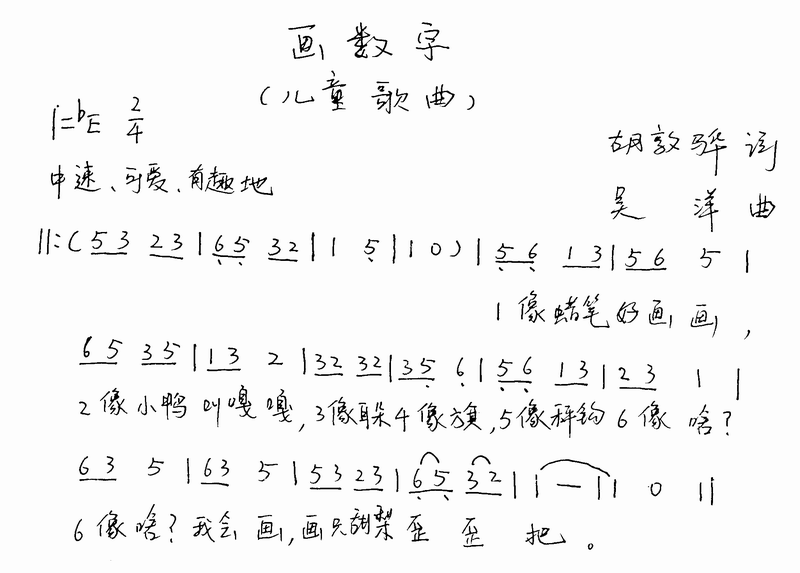 画数字
(儿童歌曲)
1=♭E 2/4
胡敦骅 词
中速、可爱、有趣地
吴 洋 曲
||:(5 3 2 3 | 6 5 3 2 | 1 5 | 1 0) | 5 6 1 3 | 5 6 5 |
1像蜡笔好画画,
6 5 3 5 | 1 3 2 | 3 2 3 2 | 3 5 6 | 5 6 1 3 | 2 3 1 |
2像小鸭叫嘎嘎,3像耳朵4像旗,5像秤钩6像啥?
6 3 5 | 6 3 5 | 5 3 2 3 | 6 5 3 2 | 1 — | 1 0 ||
6像啥?我会画,画只甜梨歪歪把。